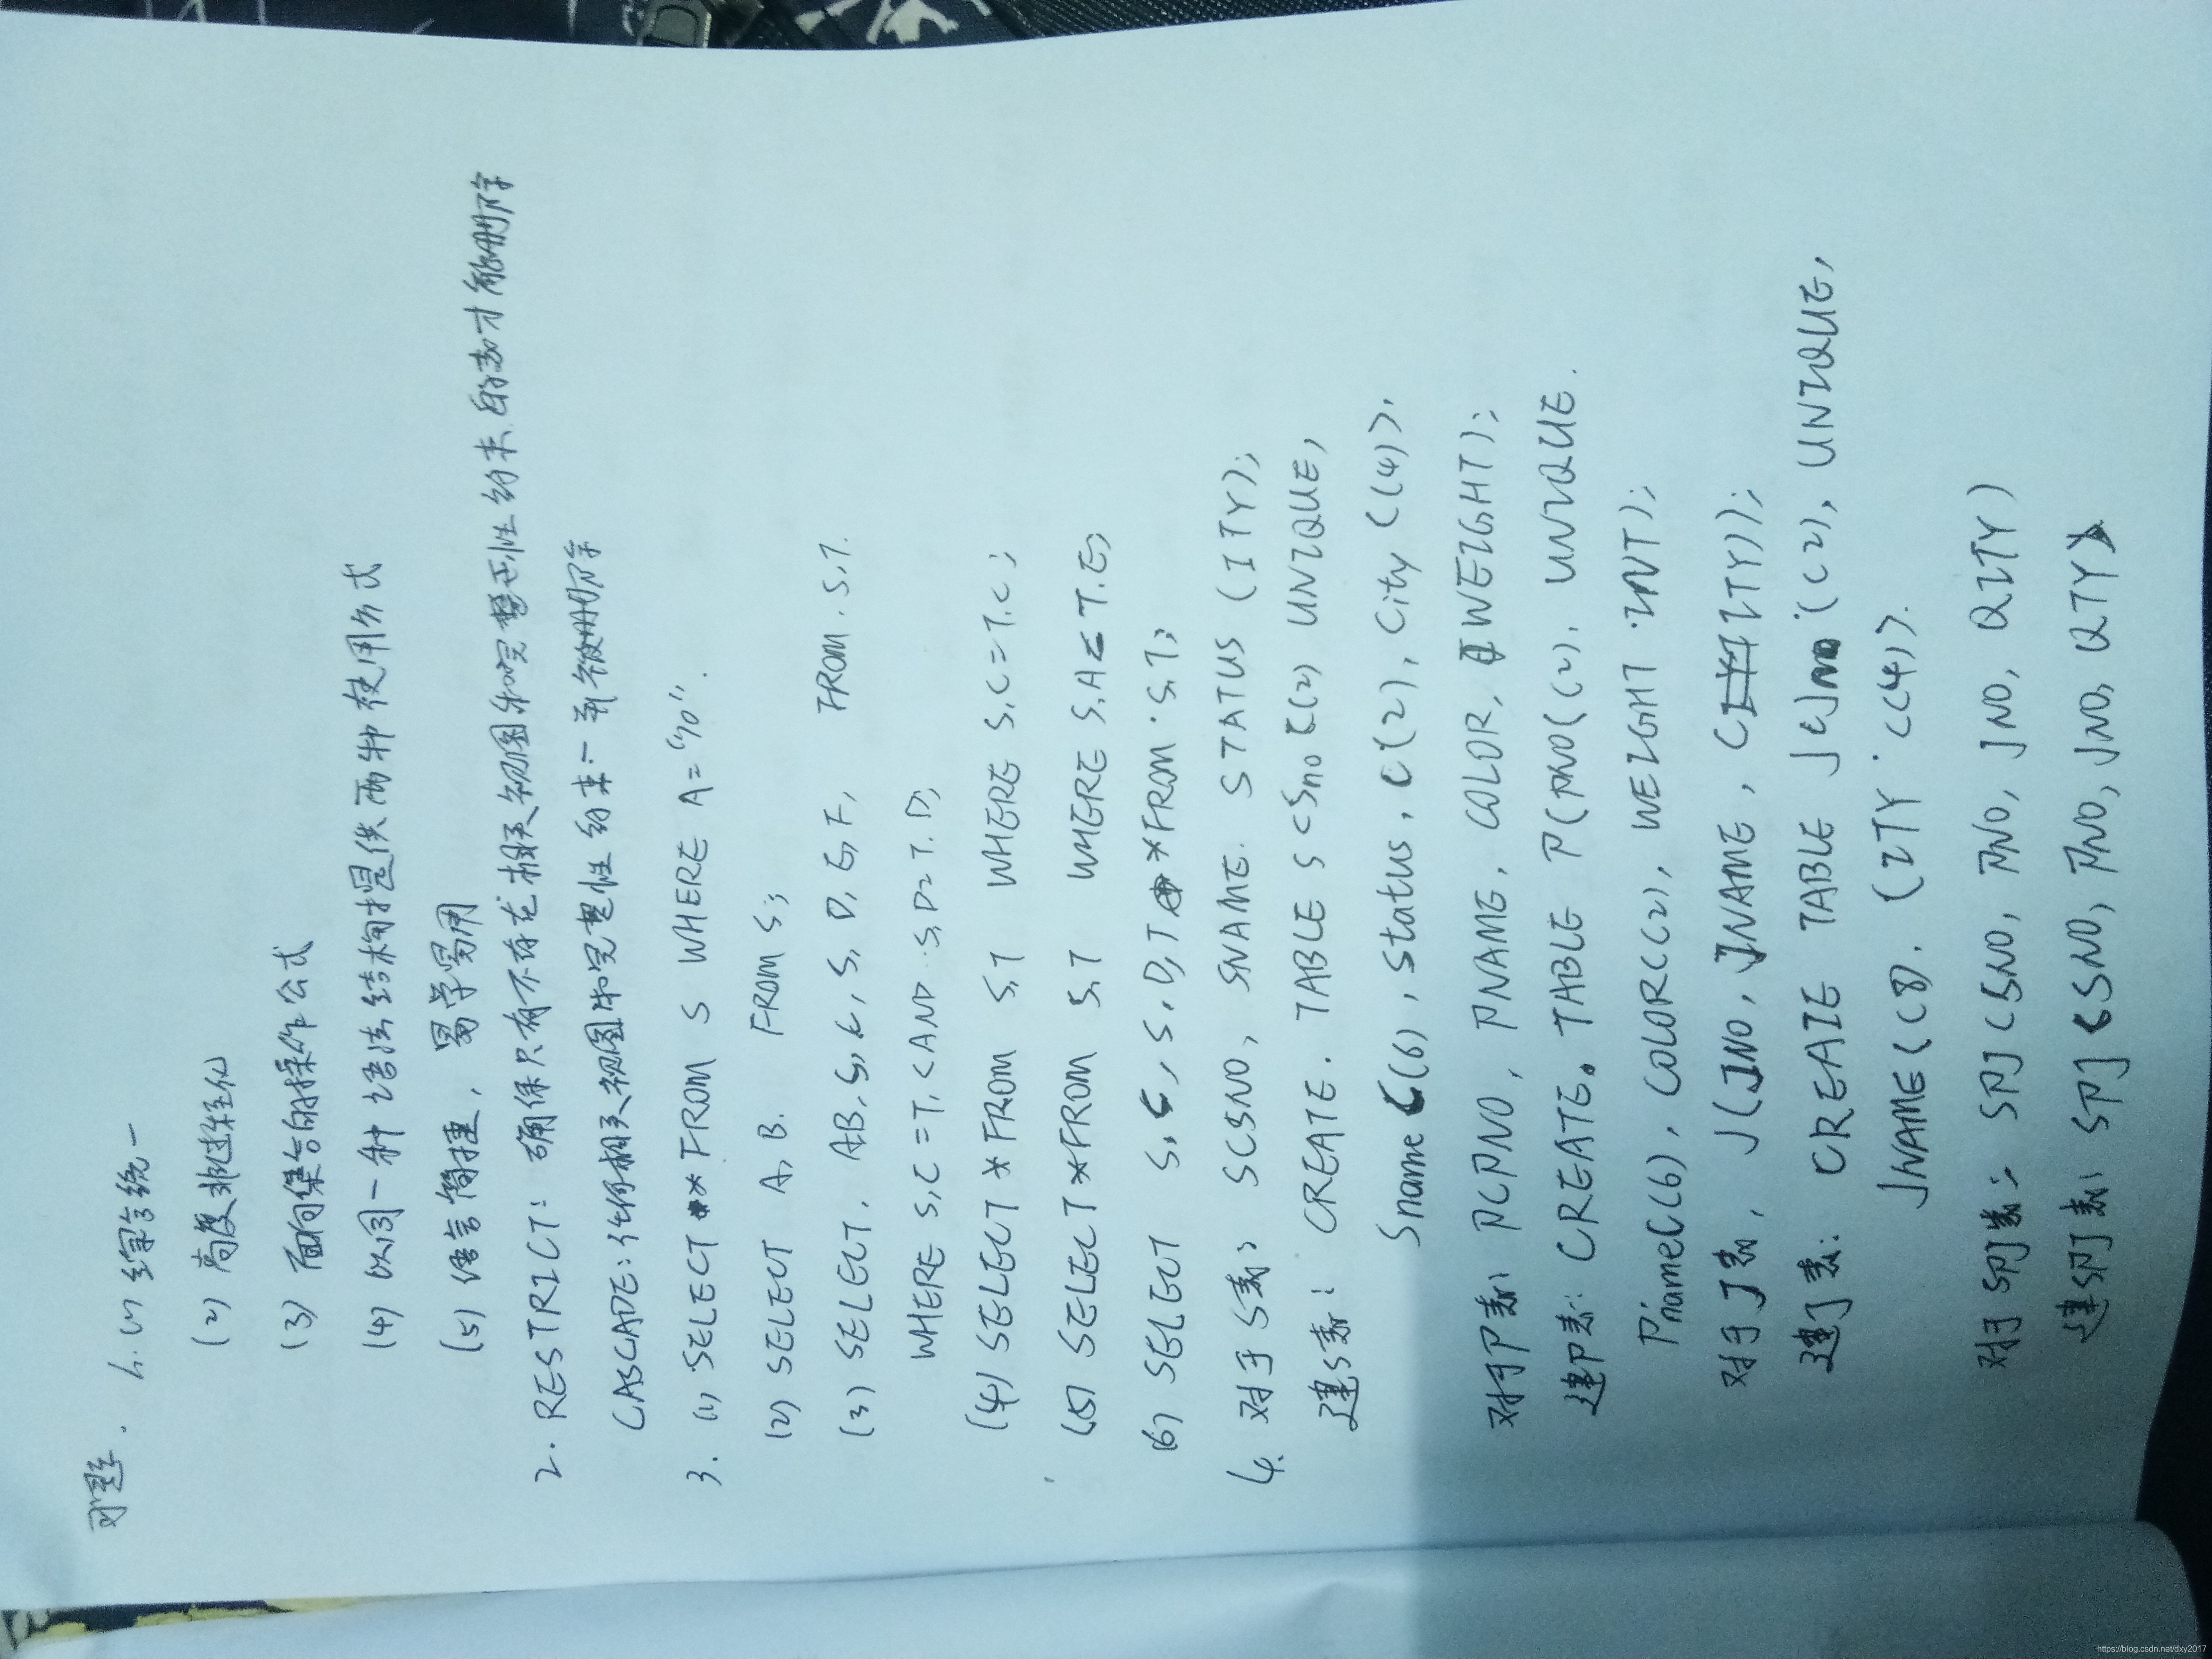 习题. 1. (1) 综合统一
(2) 高度非过程化
(3) 面向集合的操作公式
(4) 以同一种语法结构提供两种使用方式
(5) 语言简捷, 易学易用
2. RESTRICT: 确保只有不存在相关视图和完整性约束的表才能删除
CASCADE: 任何相关视图和完整性约束一并被删除
3. (1) SELECT * FROM S WHERE A="10".
(2) SELECT A, B. FROM S;
(3) SELECT. AB, S, C, S, D, E, F, FROM. S, T.
WHERE S, C = T, C AND S, D = T. D;
(4) SELECT * FROM S, T WHERE S, C = T, C;
(5) SELECT * FROM S, T WHERE S, A < T. E;
(6) SELECT S, C, S. D, T * FROM S, T;
4. 对于S表: S(SNO, SNAME. STATUS (ITY);
建S表: CREATE. TABLE S (Sno C(2) UNIQUE,
Sname C(6), Status, C(2), City C(4)).
对于P表: P(PNO, PNAME, COLOR, WEIGHT);
建P表: CREATE. TABLE P(PNO C(2). UNIQUE.
Pname C(6), COLOR C(2), WEIGHT INT);
对于J表, J(JNO, JNAME, CITY));
建J表: CREATE TABLE J (Jno C(2), UNIQUE,
JNAME C(8). CITY C(4)).
对于SPJ表: SPJ (SNO, PNO, JNO, QITY)
建SPJ表: SPJ (SNO, PNO, JNO, QTY)
https://blog.csdn.net/dxy2017